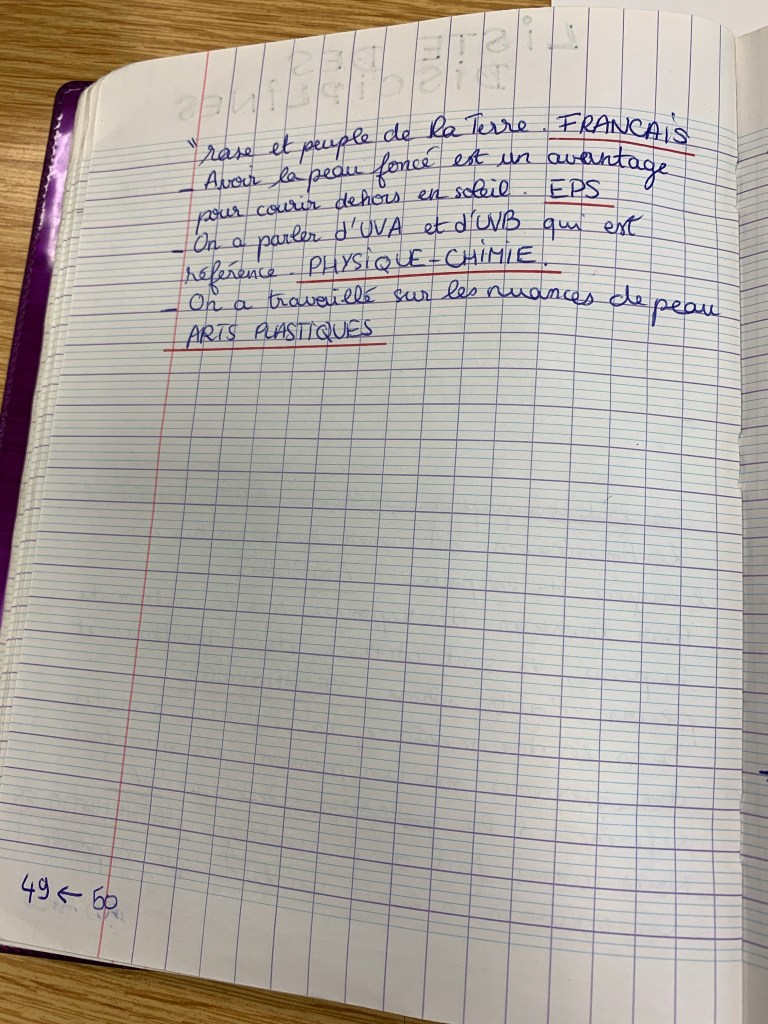 LISTE DES
DISCIPLINES
" rase et peuple de la Terre. FRANCAIS
- Avoir la peau foncé est un avantage
pour courir dehors en soleil. EPS
- On a parler d'UVA et d'UVB qui est
référence. PHYSIQUE-CHIMIE.
- On a travaillé sur les nuances de peau
ARTS PLASTIQUES
49 ← 50